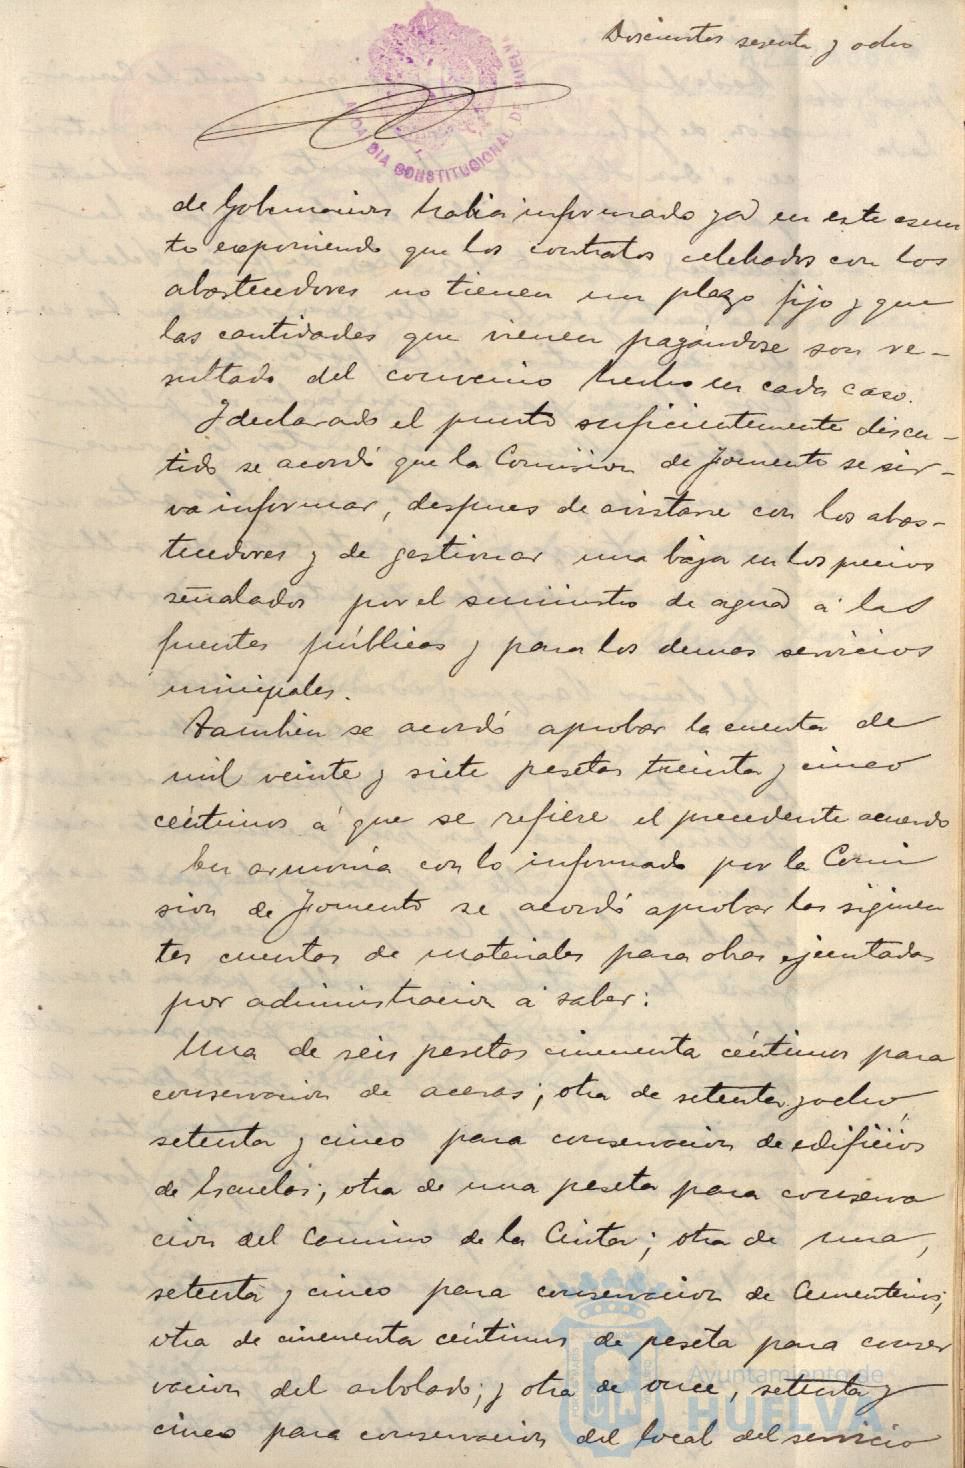 Doscientos sesenta y ocho
ALCALDIA CONSTITUCIONAL DE HUELVA
de Gobernacion habia informado ya en este asun
to exponiendo que los contratos celebrados con los
abastecedores no tienen un plazo fijo y que
las cantidades que vienen pagándose son re-
sultado del convenio hecho en cada caso.
Y declarado el punto suficientemente discu-
tido se acordó que la Comision de Fomento se sir-
va informar, despues de avistarse con los abas-
tecedores y de gestionar una baja en los precios
señalados por el suministro de agua á las
fuentes públicas y para los demas servicios
municipales.
Tambien se acordó aprobar la cuenta de
mil veinte y siete pesetas treinta y cinco
céntimos á que se refiere el precedente acuerdo
En armonía con lo informado por la Comi
sion de Fomento se acordó aprobar las siguien
tes cuentas de materiales para obras ejecutadas
por administracion á saber:
Una de seis pesetas cincuenta céntimos para
conservacion de aceras; otra de setenta y ocho,
setenta y cinco para conservacion de edificios
de Escuelas; otra de una peseta para conserva
cion del Camino de la Cinta; otra de una,
setenta y cinco para conservacion de Cementerios;
otra de cincuenta céntimos de peseta para conser
vacion del arbolado; y otra de once, setenta y
cinco para conservacion del local del servicio
Ayuntamiento de
HUELVA